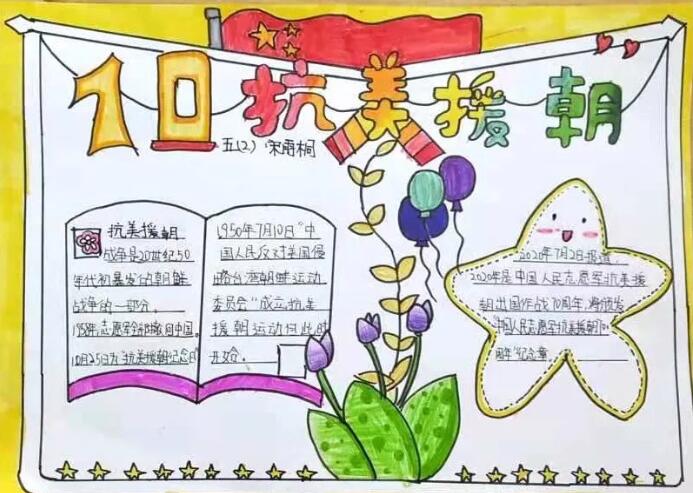 70抗美援朝
五(2) 宋雨桐
抗美援朝
战争是20世纪50
年代初暴发的朝鲜
战争的一部分。
1958年志愿军全部撤回中国。
10月25日为"抗美援朝纪念日
1950年7月10日"中
国人民反对美国侵
略台湾朝鲜运动
委员会"成立,抗美
援朝运动从此时
开始.
2020年7月2日报道,
2020年是中国人民志愿军抗美援
朝出国作战70周年,将颁发
"中国人民志愿军抗美援朝70
周年"纪念章.